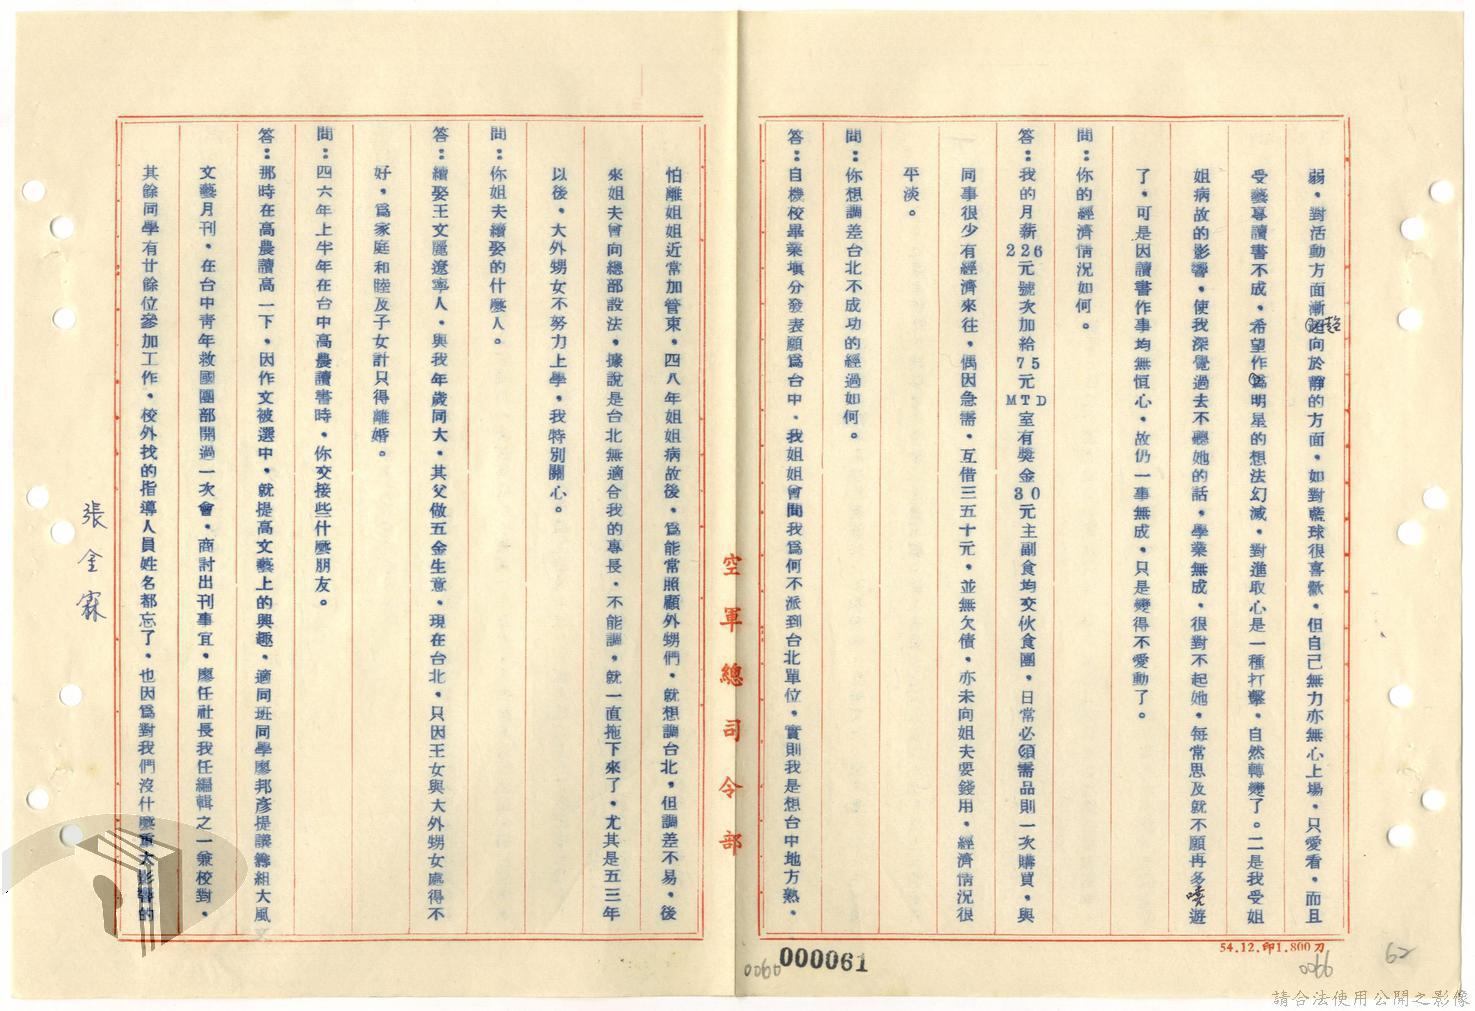 弱，對活動方面漸趨向於靜的方面，如對藍球很喜歡，但自己無力亦無心上場，只愛看，而且
受藝專讀書不成，希望作為明星的想法幻滅，對進取心是一種打擊，自然轉變了。二是我受姐
姐病故的影響，使我深覺過去不聽她的話，學業無成，很對不起她，每常思及就不願再多嘵遊
了，可是因讀書作事均無恒心，故仍一事無成，只是變得不愛動了。
問：你的經濟情況如何。
答：我的月薪226元號次加給75元MTD室有獎金30元主副食均交伙食團，日常必須需品則一次購買，與
同事很少有經濟來往，偶因急需，互借三五十元，並無欠債，亦未向姐夫要錢用，經濟情況很
平淡。
問：你想調差台北不成功的經過如何。
答：自機校畢業填分發表願為台中，我姐姐曾問我為何不派到台北單位，實則我是想台中地方熟，
怕離姐姐近常加管束，四八年姐姐病故後，為能常照顧外甥們，就想調台北，但調差不易，後
來姐夫曾向總部設法，據說是台北無適合我的專長，不能調，就一直拖下來了，尤其是五三年
以後，大外甥女不努力上學，我特別關心。
問：你姐夫續娶的什麼人。
答：續娶王文麗遼寧人，與我年歲同大，其父做五金生意，現在台北，只因王女與大外甥女處得不
好，為家庭和睦及子女計只得離婚。
問：四六年上半年在台中高農讀書時，你交接些什麼朋友。
答：那時在高農讀高一下，因作文被選中，就提高文藝上的興趣，適同班同學廖邦彥提議籌組大風
文藝月刊，在台中青年救國團部開過一次會，商討出刊事宜，廖任社長我任編輯之一兼校對，
其餘同學有廿餘位參加工作，校外找的指導人員姓名都忘了，也因為對我們沒什麼重大影響的
張金霖
空軍總司令部
54.12.印1.800刀
000061
0060
0066
62
請合法使用公開之影像